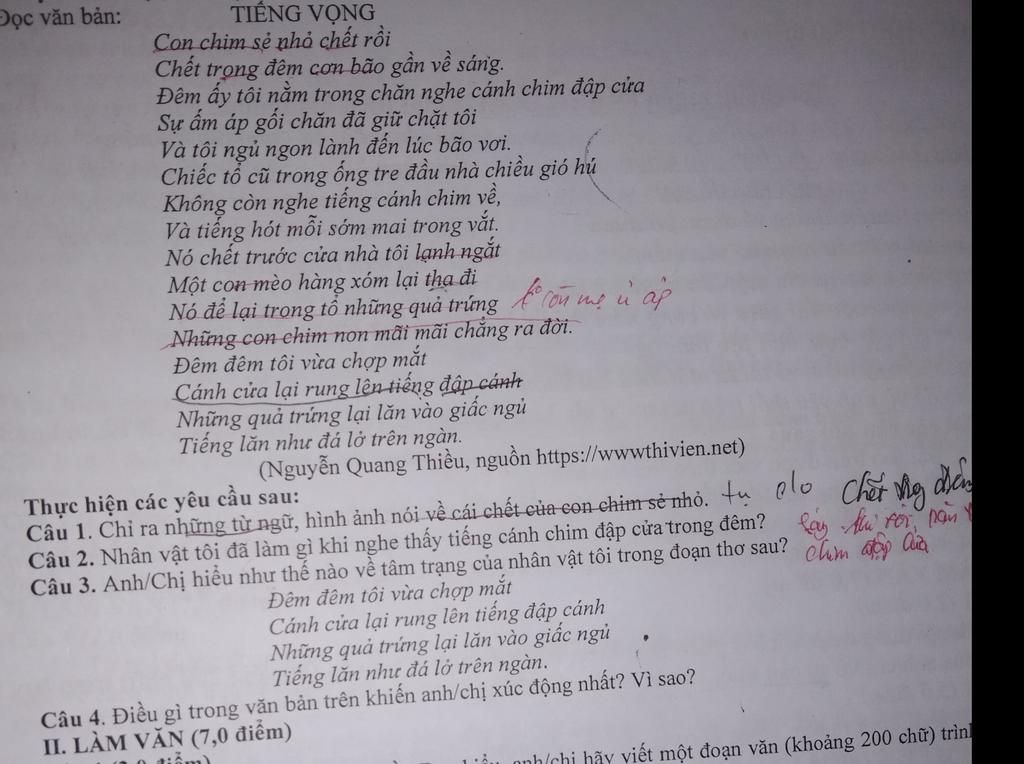 Đọc văn bản: TIẾNG VỌNG
Con chim sẻ nhỏ chết rồi
Chết trong đêm cơn bão gần về sáng.
Đêm ấy tôi nằm trong chăn nghe cánh chim đập cửa
Sự ấm áp gối chăn đã giữ chặt tôi
Và tôi ngủ ngon lành đến lúc bão vơi.
Chiếc tổ cũ trong ống tre đầu nhà chiều gió hú
Không còn nghe tiếng cánh chim về,
Và tiếng hót mỗi sớm mai trong vắt.
Nó chết trước cửa nhà tôi lạnh ngắt
Một con mèo hàng xóm lại tha đi
Nó để lại trong tổ những quả trứng ko còn mẹ ủ ấp
Những con chim non mãi mãi chẳng ra đời.
Đêm đêm tôi vừa chợp mắt
Cánh cửa lại rung lên tiếng đập cánh
Những quả trứng lại lăn vào giấc ngủ
Tiếng lăn như đá lở trên ngàn.
(Nguyễn Quang Thiều, nguồn https://wwwthivien.net)
Thực hiện các yêu cầu sau:
Câu 1. Chỉ ra những từ ngữ, hình ảnh nói về cái chết của con chim sẻ nhỏ. Chết
Câu 2. Nhân vật tôi đã làm gì khi nghe thấy tiếng cánh chim đập cửa trong đêm?
Câu 3. Anh/Chị hiểu như thế nào về tâm trạng của nhân vật tôi trong đoạn thơ sau? chim đập cửa
Đêm đêm tôi vừa chợp mắt
Cánh cửa lại rung lên tiếng đập cánh
Những quả trứng lại lăn vào giấc ngủ
Tiếng lăn như đá lở trên ngàn.
Câu 4. Điều gì trong văn bản trên khiến anh/chị xúc động nhất? Vì sao?
II. LÀM VĂN (7,0 điểm)
anh/chị hãy viết một đoạn văn (khoảng 200 chữ) trình